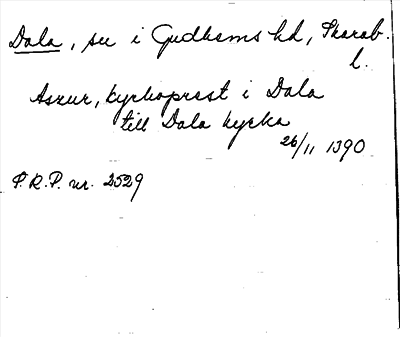 Dala, su i Gudhems hd, Skarab.
l.
Assur, kyrkoprest i Dala
till Dala kyrka
26/11 1390
P.R.P. nr. 2529